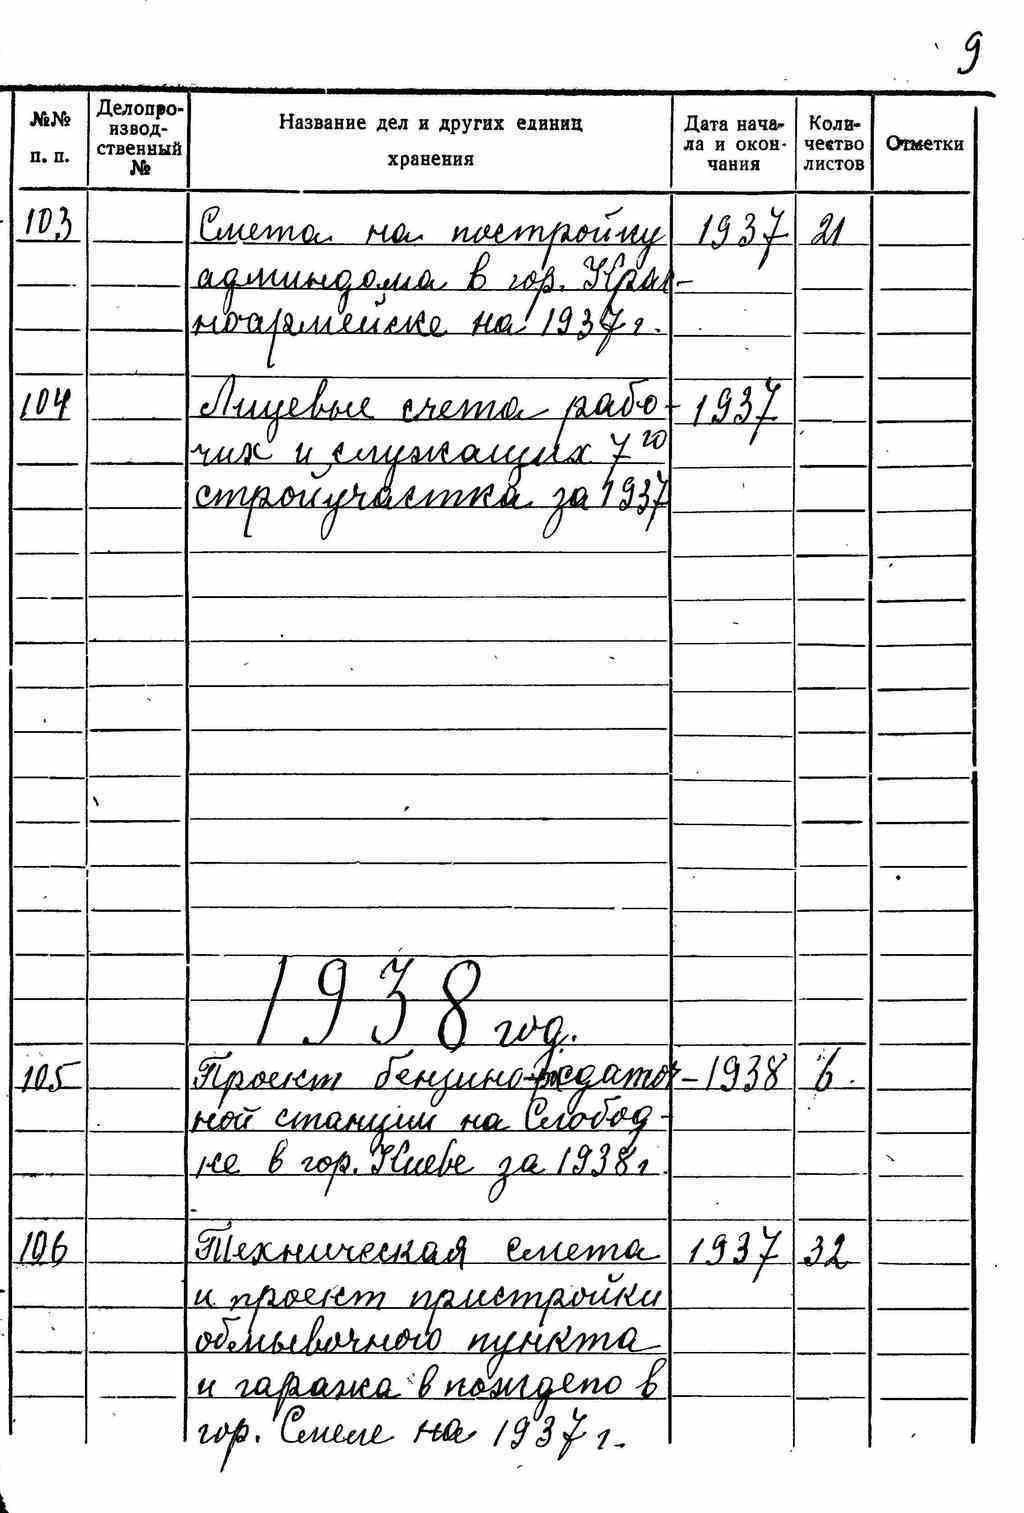 9
№№ п. п. Делопроизводственный № Название дел и других единиц хранения Дата начала и окончания Количество листов Отметки
103 Смета на постройку 1937 21
админдома в гор. Крас-
ноармейске на 1937 г.
104 Лицевые счета рабо- 1937
чих и служащих 7го
стройучастка за 1937
1938 год.
105 Проект бензино- раздаточ- 1938 6.
ной станции на Слобод-
ке в гор. Киеве за 1938 г.
106 Техническая смета 1937 32
и проект пристройки
обмывочного пункта
и гаража в пождепо в
гор. Смеле на 1937 г.